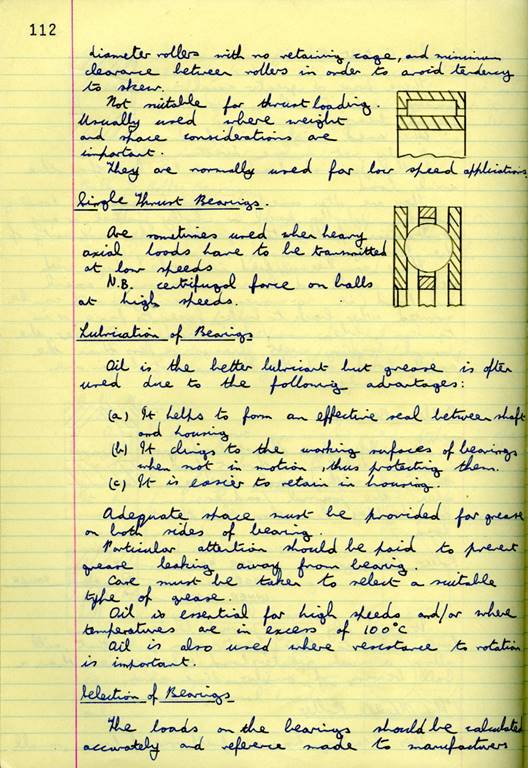 112
diameter rollers with no retaining cage, and minimum
clearance between rollers in order to avoid tendency
to skew.
Not suitable for thrust loading.
Usually used where weight
and space considerations are
important.
They are normally used for low speed applications
Single Thrust Bearings.
Are sometimes used when heavy
axial loads have to be transmitted
at low speeds
N.B. centrifugal force on balls
at high speeds.
Lubrication of Bearings
Oil is the better lubricant but grease is often
used due to the following advantages:
(a) It helps to form an effective seal between shaft
and housing
(b) It clings to the working surfaces of bearings
when not in motion, thus protecting them.
(c) It is easier to retain in housing.
Adequate space must be provided for grease
on both sides of bearing.
Particular attention should be paid to prevent
grease leaking away from bearing.
Care must be taken to select a suitable
type of grease.
Oil is essential for high speeds and/or where
temperatures are in excess of 100°C
Oil is also used where resistance to rotation
is important.
Selection of Bearings
The loads on the bearings should be calculated
accurately and reference made to manufacturers